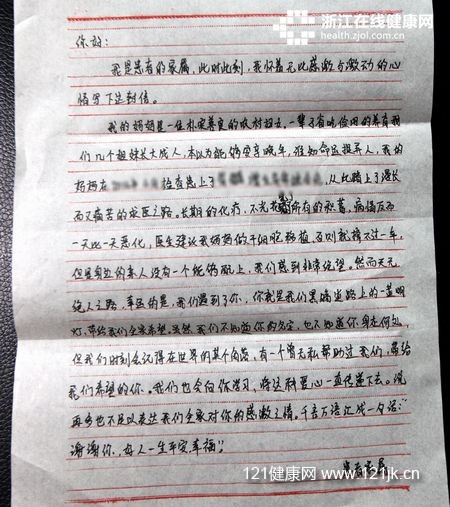 浙江在线健康网
health.zjol.com.cn
你好:
我是患者的家属,此时此刻,我怀着无比感激与激动的心
情写下这封信。
我的妈妈是一位朴实善良的农村妇女。一辈子省吃俭用的养育我
们几个姐妹长大成人,本以为能够安享晚年,谁知命运捉弄人,我的
妈妈在 检查患上了 ,从此踏上了漫长
而又痛苦的求医之路。长期的化疗,不光花 所有的积蓄。病情反而
一天比一天恶化,医生建议我妈妈做干细胞移植,否则就撑不过一年,
但是身边的亲人没有一个能够配上,我们感到非常绝望。然而天无
绝人之路,幸运的是,我们遇到了你,你就是我们黑暗道路上的一盏明
灯,带给我们全家希望。虽然我们不知道你的名字,也不知道你身在何处,
但我们时刻会记得在世界的某个角落,有一个曾无私帮助过我们,带给
我们希望的你。我们也会向你学习,将这种爱心一直传递下去。说
再多也不足以表达我们全家对你的感激之情。千言万语汇成一句话:“
谢谢你,好人一生平安幸福”!
患者家属
121健康网 www.121jk.cn